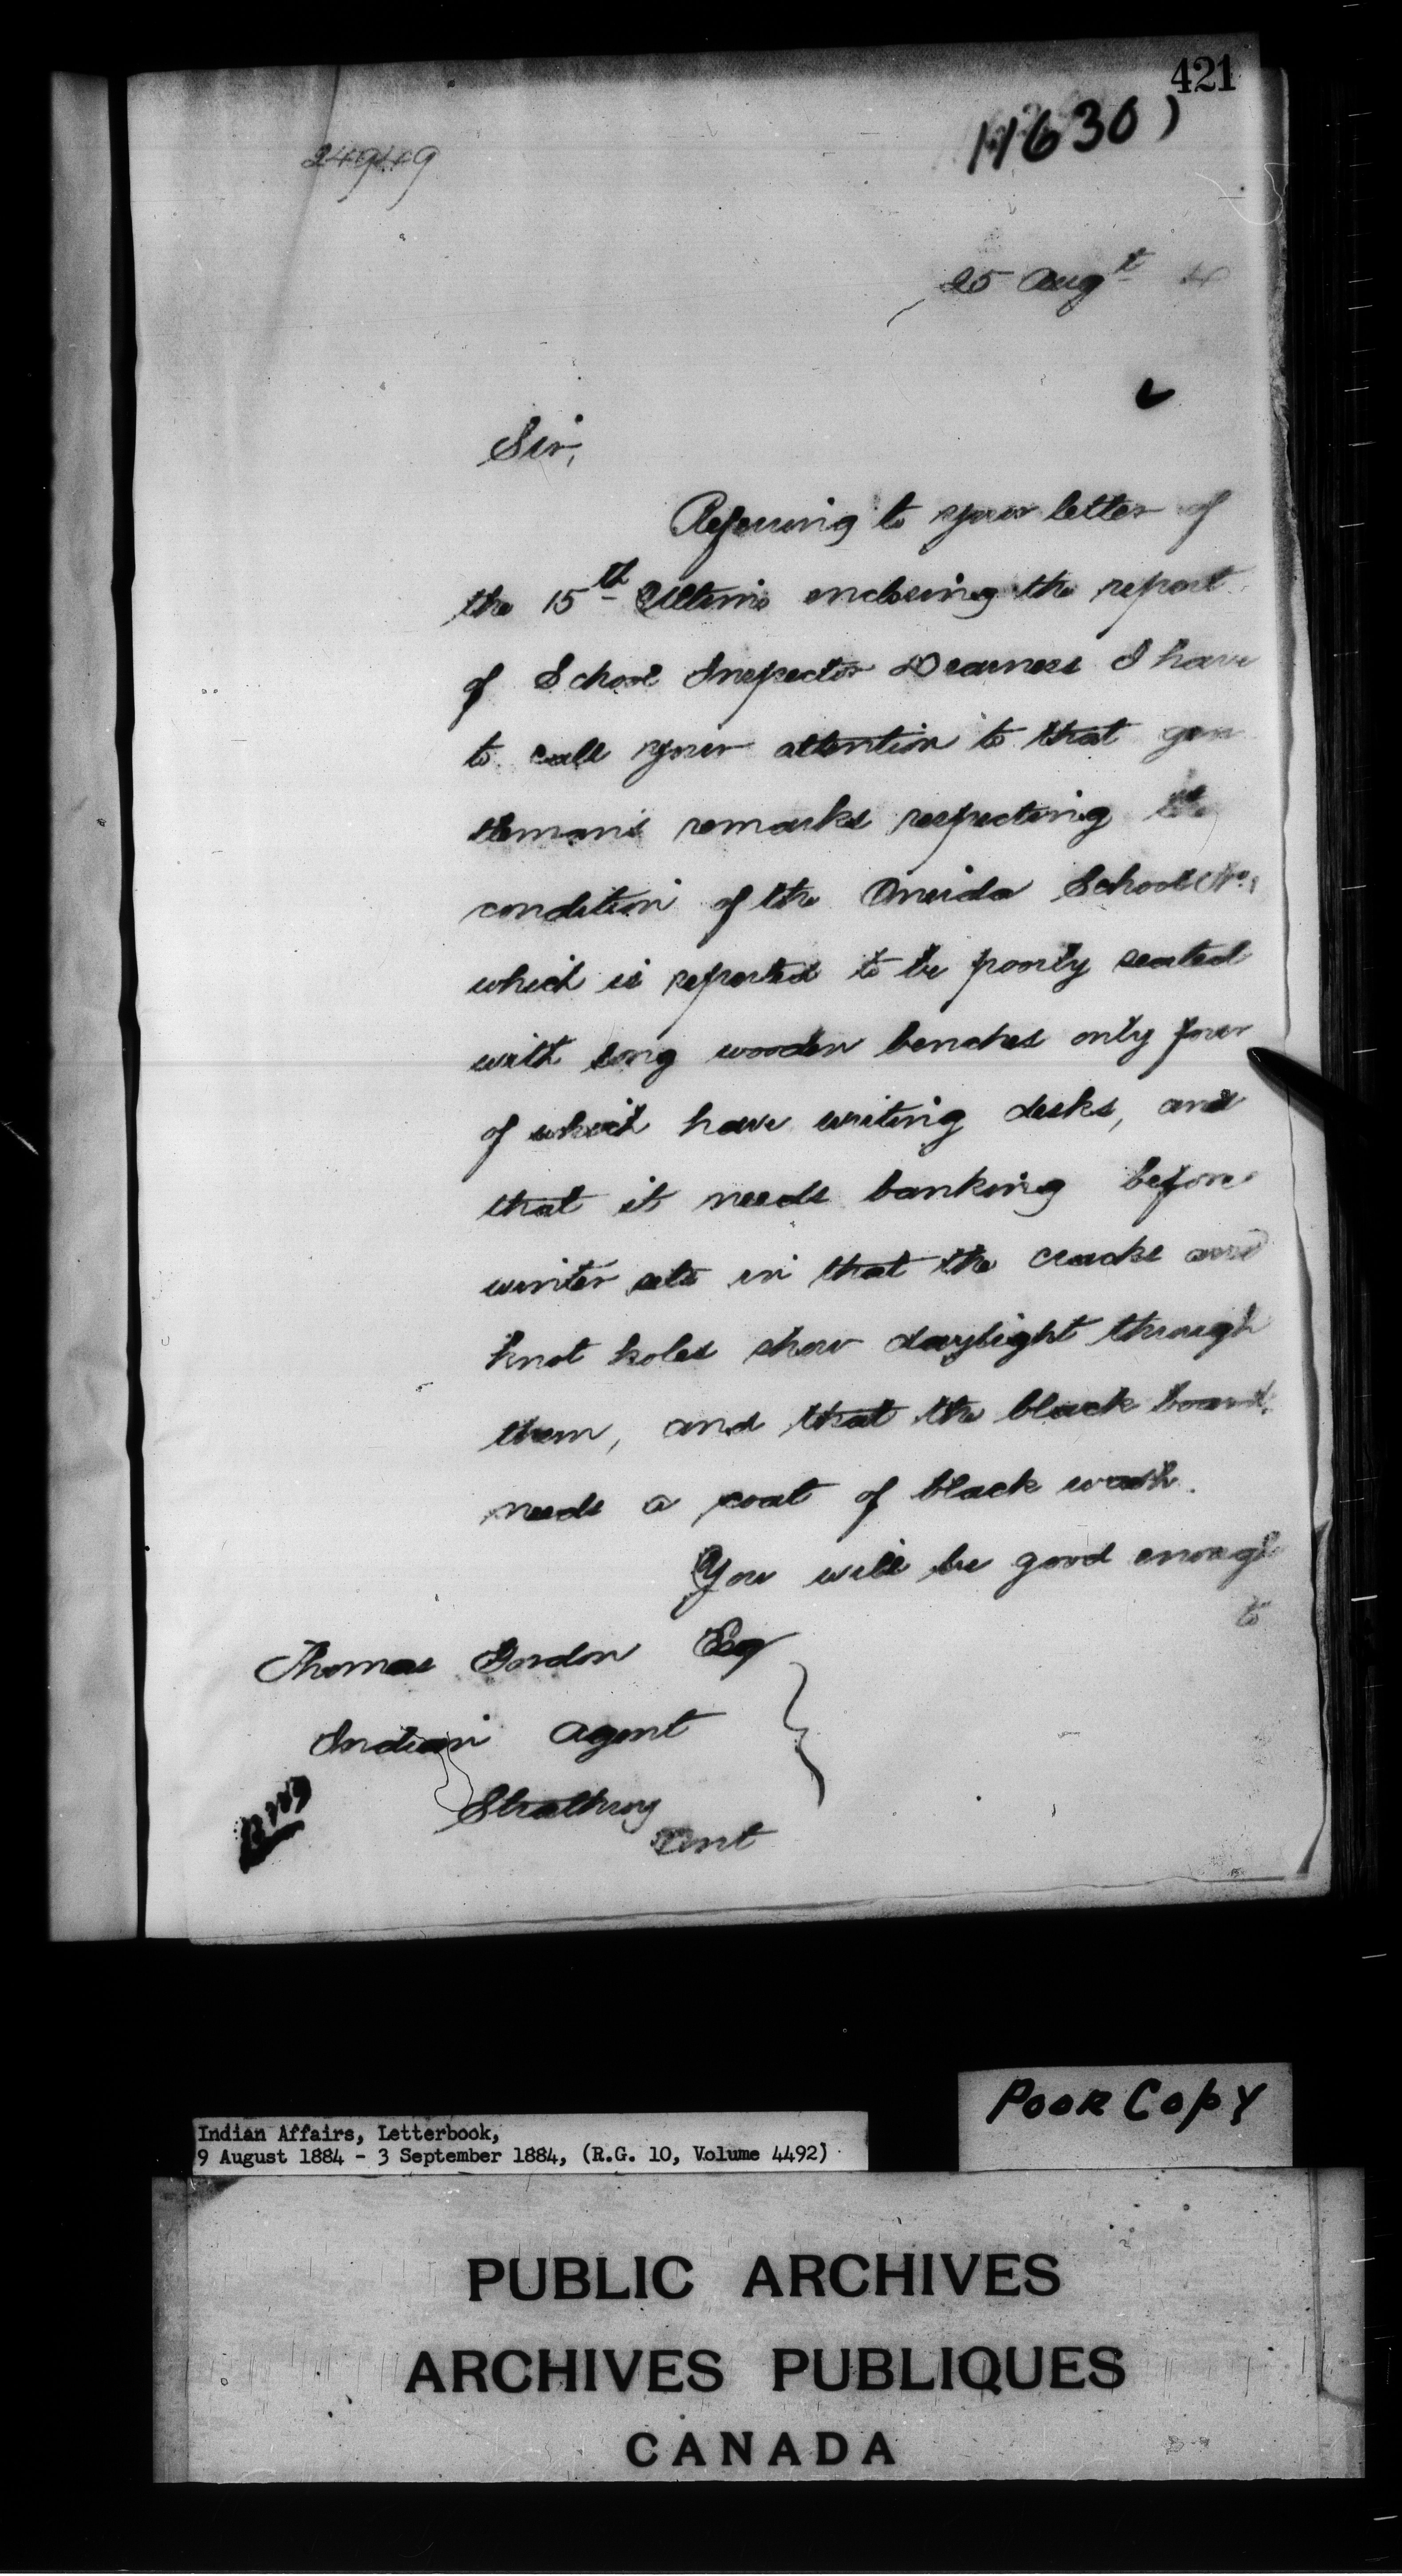 421
11630)
24949
25 Augt 4
Sir,
Referring to your letter of
the 15th Ultimo enclosing the report
of School Inspector Dearness I have
to call your attention to that gen
tleman's remarks respecting the
condition of the Oneida School No. 1
which is reported to be poorly seated
with long wooden benches only four
of which have writing desks, and
that it needs banking before
winter sets in that the cracks and
knot holes show daylight through
them, and that the black board
needs a coat of black wash.
You will be good enough
to
Thomas Gordon Esq
Indian Agent
Strathroy
Ont
Poor Copy
Indian Affairs, Letterbook,
9 August 1884 - 3 September 1884, (R.G. 10, Volume 4492)
PUBLIC ARCHIVES
ARCHIVES PUBLIQUES
CANADA